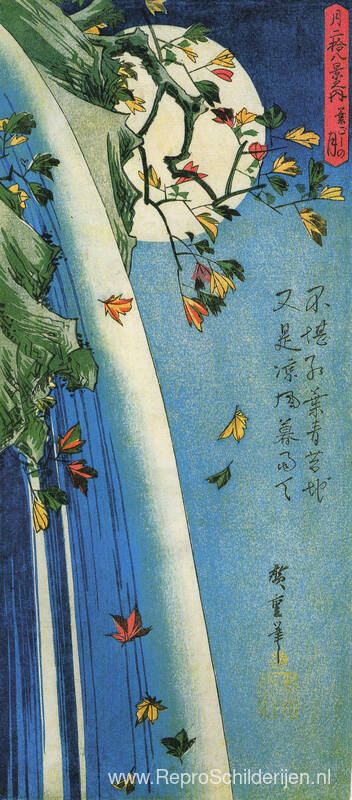 月二拾八景之内 葉ごしの月
不堪紅葉青苔地
又是凉風暮雨天
廣重筆
www.ReproSchilderijen.nl